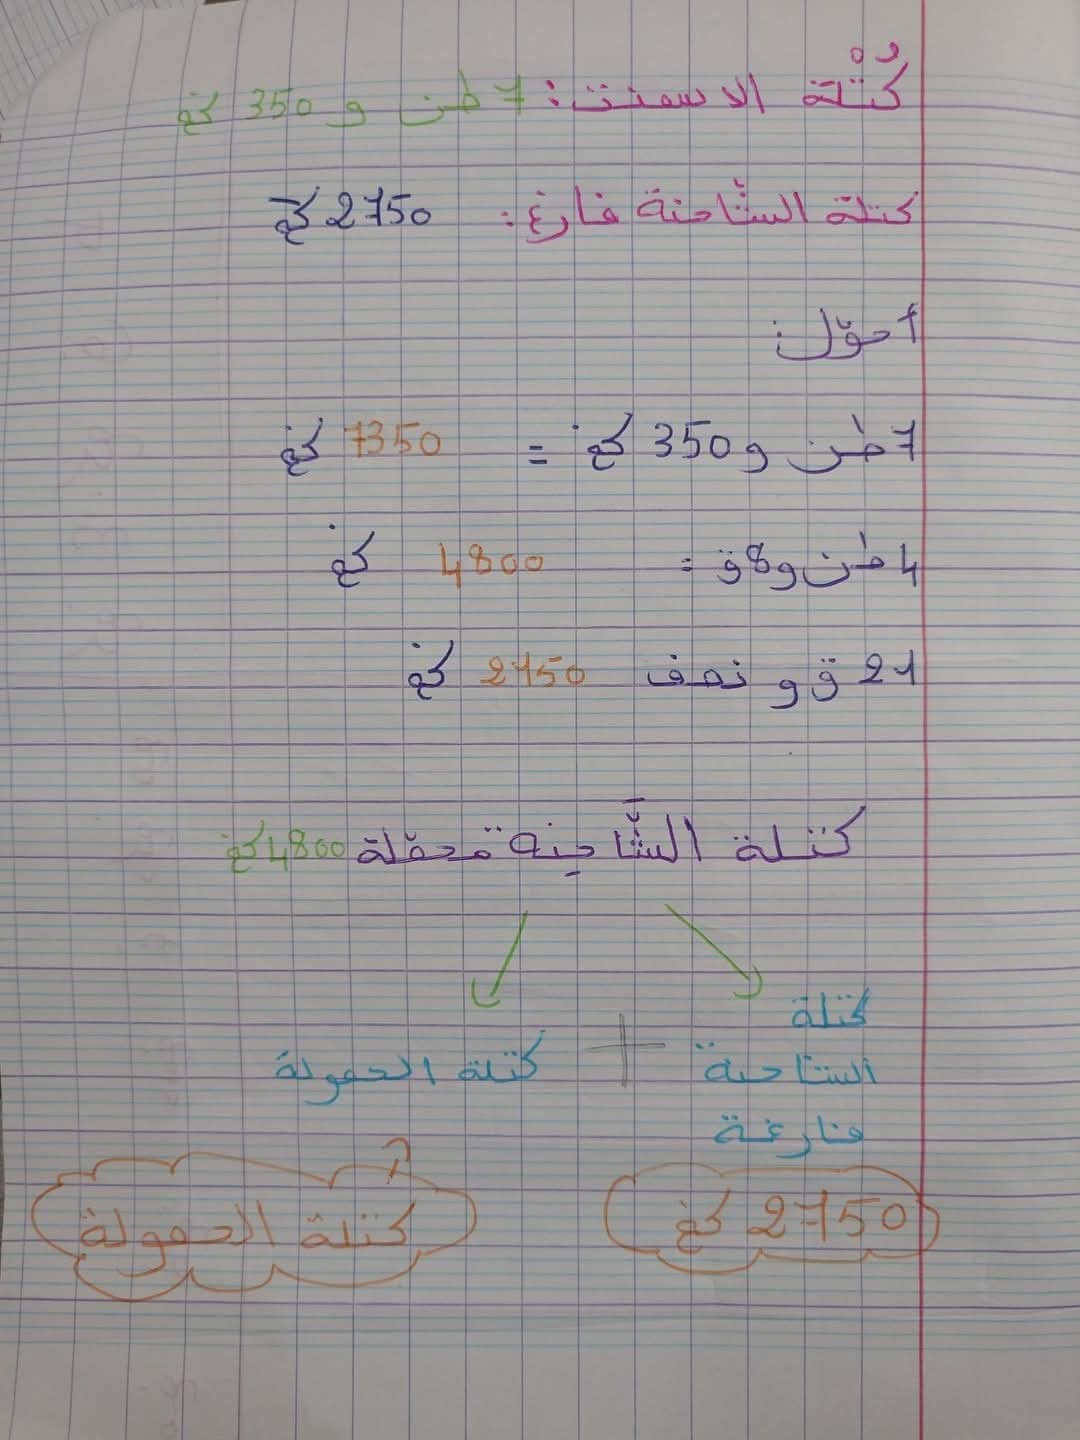 كُتْلة الاسمنت: 7 طن و 350 كغ
كتلة الشّاحنة فارغ: 2750 كغ
أحوّل:
7 طن و 350 كغ = 7350 كغ
4 طن و 8 ق = 4800 كغ
27 ق و نصف 2750 كغ
كتلة الشَّاحِنة محمّلة 4800 كغ
كتلة الشاحنة فارغة + كتلة الحمولة
2750 كغ
كتلة الحمولة ?